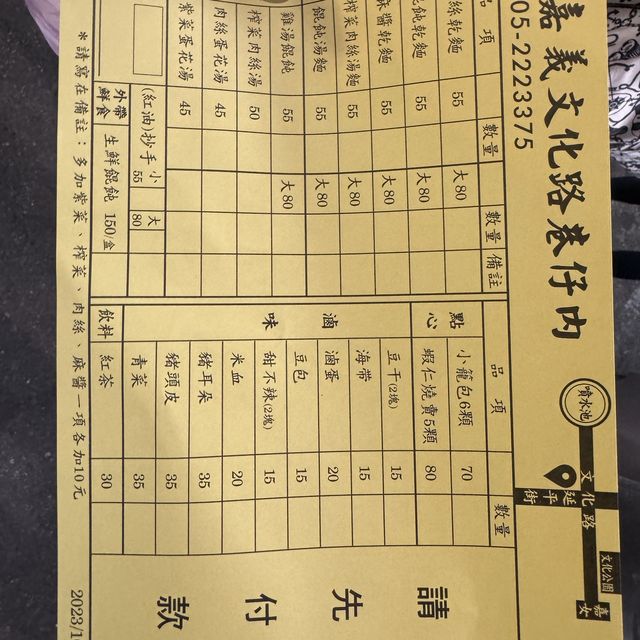 嘉義文化路巷仔內
05-2223375
噴水池
文化路
延平街
文化公園
嘉女
品項 數量 數量 備註
絲乾麵 55 大80
飩乾麵 55 大80
麻醬乾麵 55 大80
榨菜肉絲湯麵 55 大80
餛飩湯麵 55 大80
雞湯餛飩 55 大80
榨菜肉絲湯 50
肉絲蛋花湯 45
紫菜蛋花湯 45
(紅油)抄手 小55 大80
外帶鮮食 生鮮餛飩 150/盒
*請寫在備註：多加紫菜、榨菜、肉絲、麻醬一項各加10元
品項 數量
點心
小籠包6顆 70
蝦仁燒賣5顆 80
滷味
豆干(2塊) 15
海帶 15
滷蛋 20
豆包 15
甜不辣(2塊) 15
米血 20
豬耳朵 35
豬頭皮 35
青菜 35
飲料
紅茶 30
請先付款